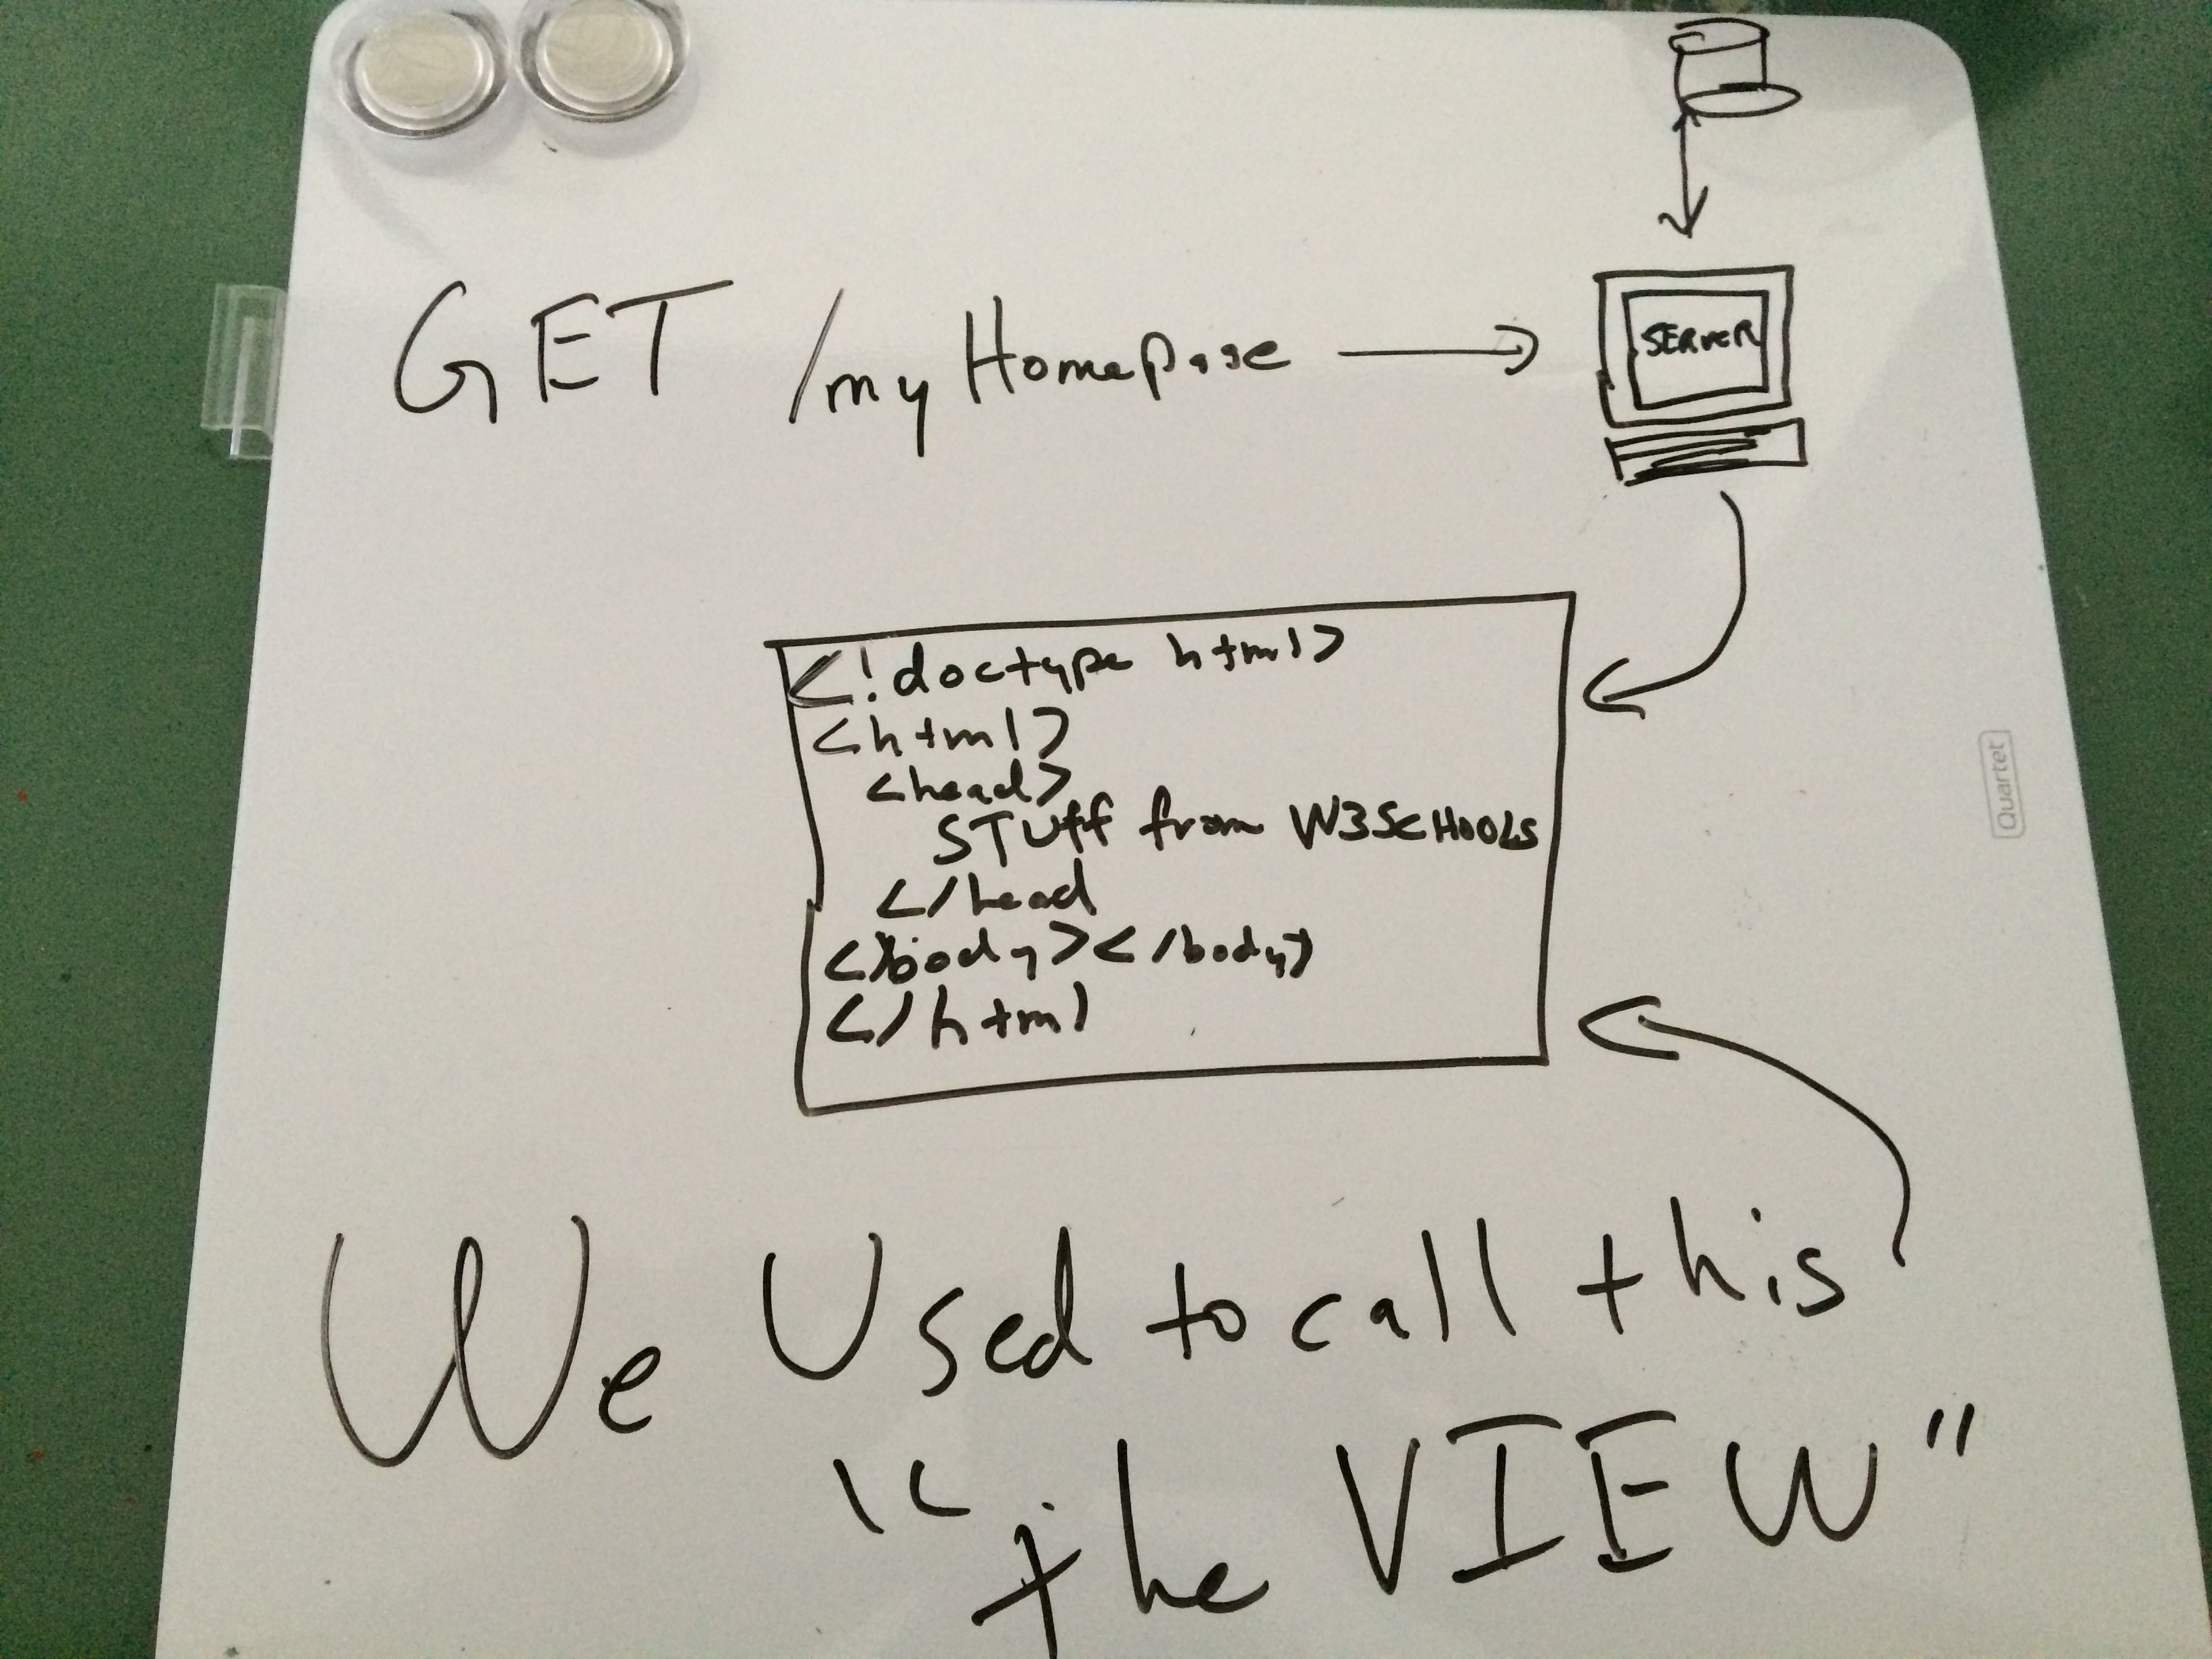 GET /myHomepage
SERVER
<!doctype html>
<html>
<head>
STUff from W3SCHOOLS
</head
</body></body>
</html
Quartet
We Used to call this
"the VIEW"